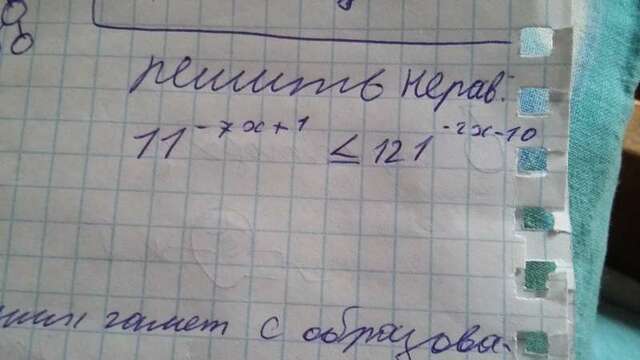 решить нерав.
11^{-7x+1} ≤ 121^{-2x-10}
гамет с образова.